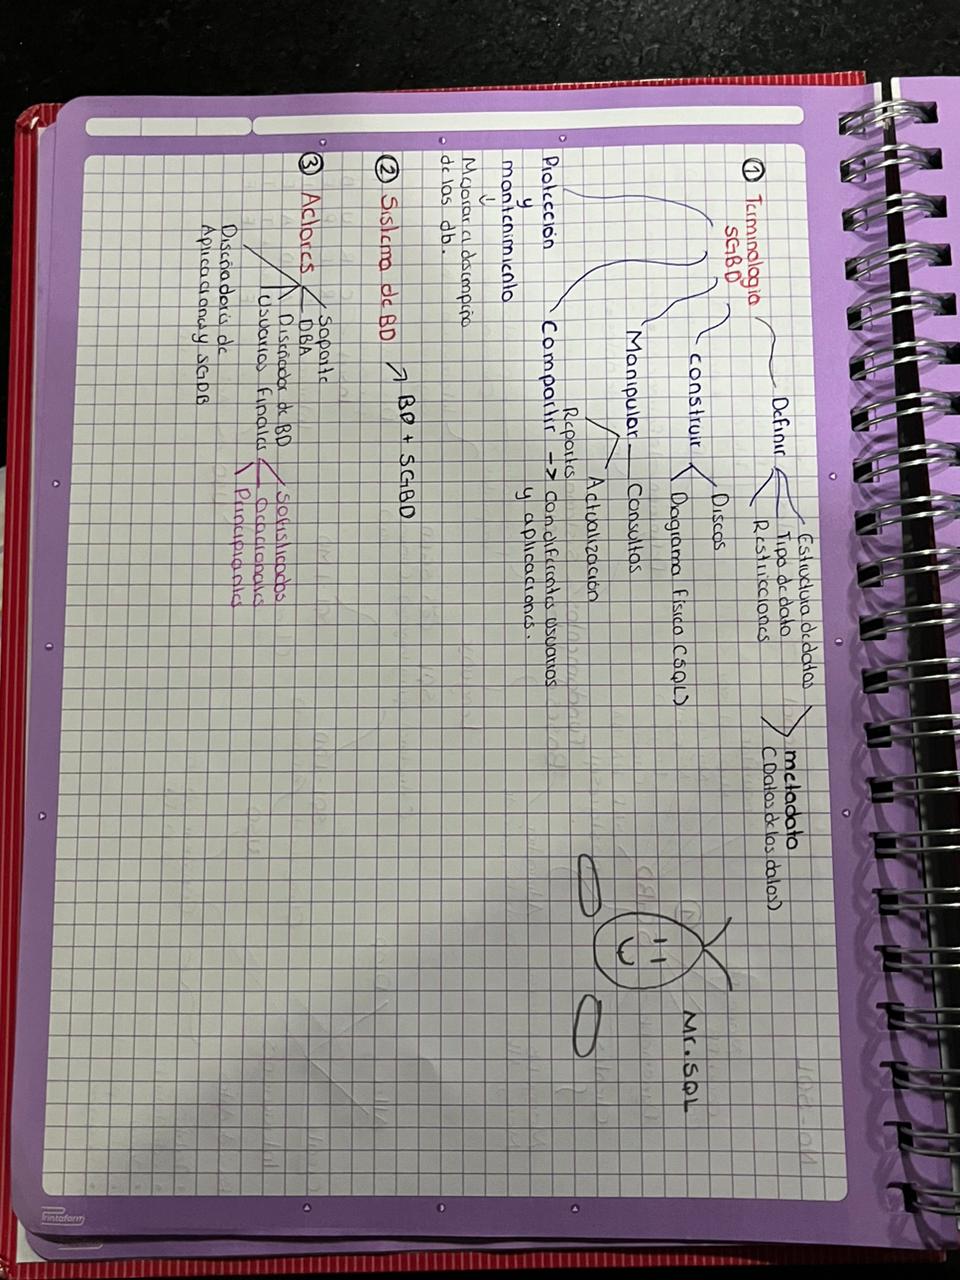 ① Terminologia
SGBD
Definir
Estructura de datos
Tipo de dato
Restricciones
metadato
(Datos de los datos)
construir
Discos
Diagrama físico (SQL)
Manipular
Consultas
Actualización
Reportes
Compartir -> con diferentes usuarios
y aplicaciones.
Protección
y
mantenimiento
Mejorar el desempeño
de las db.
Mr. SQL
② Sistema de BD → BD + SGBD
③ Actores
Soporte
DBA
Diseñador de BD
Usuarios finales
Sofisticados
Ocacionales
Principiantes
Diseñadores de
Aplicaciones y SGDB
Printaform